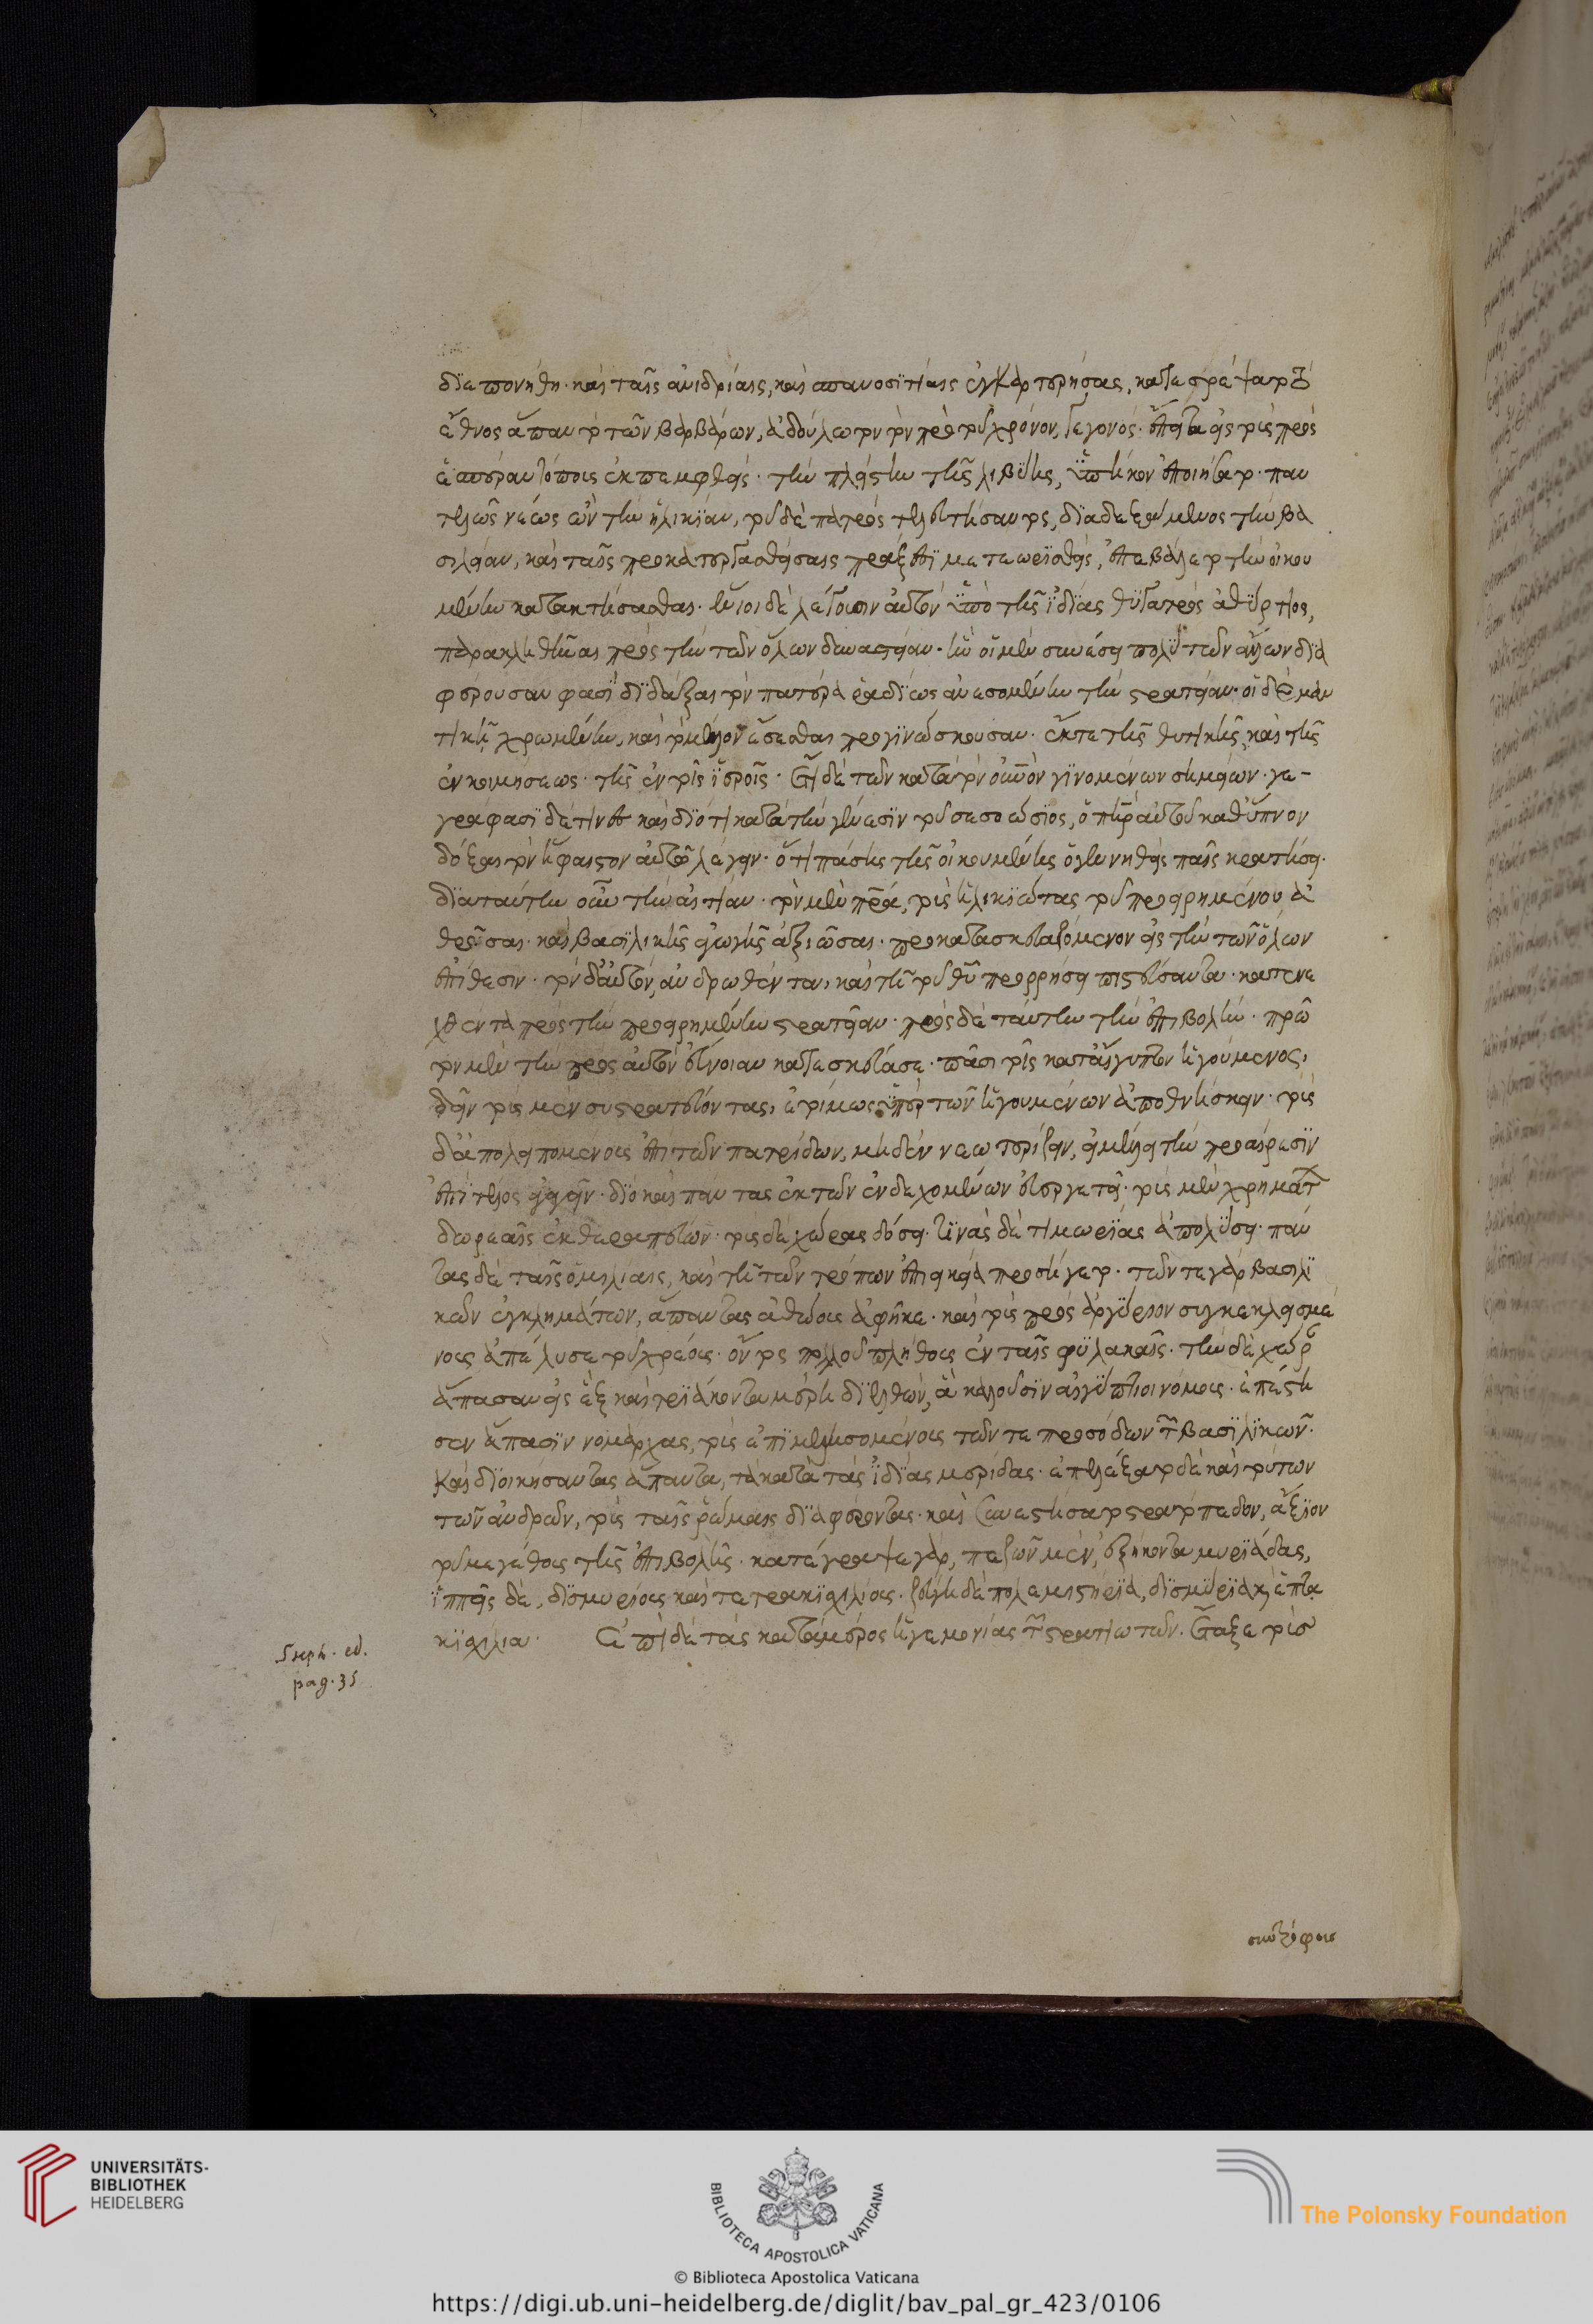 διεπονήθη· καὶ ταῖς ἀνιδρίαις, καὶ σπανοσϊτίαις ἐγκαρτερήσας, κατεστρέψατο τὸ
ἔθνος ἅπαν τὸ τῶν βαρβάρων, ἀδούλωτον τὸν πρὸ τοῦ χρόνον, γεγονός· ἔπειτα εἰς τοὺς πρὸς
ἑσπέραν τόπους ἐκπεμφθείς· τὴν πλείστην τῆς λιβύης, ὑπήκοον ἐποιήσατο· παν
τελῶς νέως ὢν τὴν ἡλικίαν, τοῦ δὲ πατρὸς τελευτήσαντος, διαδεξάμενος τὴν βα
σιλείαν, καὶ ταῖς προκατεργασθείσαις πράξεσι μετεωρϊσθείς, ἐπεβάλετο τὴν οἰκου
μένην κατακτήσασθαι. ἔνιοι δὲ λέγουσιν αὐτὸν ὑπὸ τῆς ἰδίας θυγατρὸς ἀθύρτιος,
παρακληθῆναι πρὸς τὴν τῶν ὅλων δυναστείαν· ἣν οἱ μὲν συνέσει πολὺ τῶν ἄλλων δϊα
φέρουσαν φασὶ διδάξαι τὸν πατέρα ῥαδίως ἀν ἐσομένην τὴν στρατείαν· οἱ δὲ μαν
τικῆ χρωμένην, καὶ τὸ μέλλον ἔσεσθαι προγινώσκουσαν· ἔκ τε τῆς θυτικῆς, καὶ τῆς
ἐν κοιμησεως· τῆς ἐν τοῖς ἱεροῖς· ἔτι δὲ τῶν κατὰ τὸν οὐνὸν γϊνομένων σημείων· γε-
γράφασι δέ τινες καὶ διότι κατὰ τὴν γένεσϊν τοῦ σεσοώσϊος, ὁ πὴρ αὐτοῦ καθ' ὕπνον
δόξαι τὸν ἥφαιστον αὐτῶ λέγειν· ὅτι πάσης τῆς οἰκουμένης ὁ γεννηθεὶς παῖς κρατήσει.
διαταύτην οὖν τὴν αἰτίαν· τὸν μὲν πρα, τοὺς ἡλικϊώτας τοῦ προειρημένου ἀ
θροῖσαι. καὶ βασιλικῆς ἀγωγῆς ἀξιῶσαι· προκατασκευαζόμενον εἰς τὴν τῶν ὅλων
ἐπίθεσιν· τὸν δ' αὐτὸν, ἀνδρωθέντα, καὶ τῆ τοῦ θῦ προρρήσει πιστεύσαντα· κατενε
χθέντα πρὸς τὴν προειρημένην στρατείαν· πρὸς δὲ ταύτην τὴν ἐπιβολὴν· πρῶ
τον μὲν τὴν πρὸς αὐτὸν εὔνοιαν κατεσκεύασε· πᾶσι τοῖς κατ' αἴγυπτον ἡγούμενος,
δεῖν τοὺς μὲν συστρατεύοντας, ἑτοίμως ὑπὲρ τῶν ἡγουμένων ἀποθνήσκειν· τοὺς
δ' ἀπολειπομένους ἐπὶ τῶν πατρίδων, μηδὲν νεωτερίζειν, εἰ μέλλει τὴν προαίρεσϊν
ἐπὶ τέλος ἀγαγεῖν· δϊὸ καὶ πάντας ἐκ τῶν ἐνδεχομένων εὐεργετεῖ· τοὺς μὲν χρηματ
δωρεαῖς ἐκθεραπεύων· τοὺς δὲ χώρας δόσει· τινὰς δὲ τιμωρίας ἀπολύσει· πάν
τας δὲ ταῖς ὁμιλίαις, καὶ τῆ τῶν τρόπων ἐπιεικεία προσήγετο. τῶν τε γὰρ βασιλϊ
κῶν ἐγκλημάτων, ἅπαντας ἀθώους ἀφῆκε· καὶ τοὺς πρὸς ἀργύριον συγκεκλεισμέ
νους ἀπέλυσε τοῦ χρέους· ὄντος πολλοῦ πλήθους ἐν ταῖς φυλακαῖς· τὴν δὲ χώρ
ἅπασαν εἰς ἓξ καὶ τριάκοντα μέρη διελθών, ἃ καλοῦσϊν αἰγύπτιοι νόμους· ἐπέστη
σεν ἅπασϊν νομάρχας, τοὺς ἐπϊμελησομένους τῶν τε προσόδων τῶν βασϊλϊκῶν·
καὶ διοικήσαντας ἅπαντα, τὰ κατὰ τὰς ἰδίας μερίδας· ἐπελέξατο δὲ καὶ τούτων
τῶν ἀνδρῶν, τοὺς ταῖς ῥώμαις διαφέροντας· καὶ συνεστήσατο στρατόπεδον, ἄξϊον
τοῦ μεγέθους τῆς ἐπιβολῆς· κατέγραψε γὰρ, πεζῶν μὲν, ἑξήκοντα μυριάδας,
ἱππεῖς δὲ, δϊσμυρίους καὶ τετρακϊσχιλίους· ζεύγη δὲ πολεμιστήρϊα, δϊσμύρϊα κ ἑπτα
κϊσχιλια· ἐπὶ δὲ τὰς κατὰ μέρος ἡγεμονίας τῶν στρατιωτῶν· ἔταξε τοὺς
Steph. ed.
pag. 35
συντρόφους
UNIVERSITÄTS-
BIBLIOTHEK
HEIDELBERG
BIBLIOTECA APOSTOLICA VATICANA
The Polonsky Foundation
© Biblioteca Apostolica Vaticana
https://digi.ub.uni-heidelberg.de/diglit/bav_pal_gr_423/0106